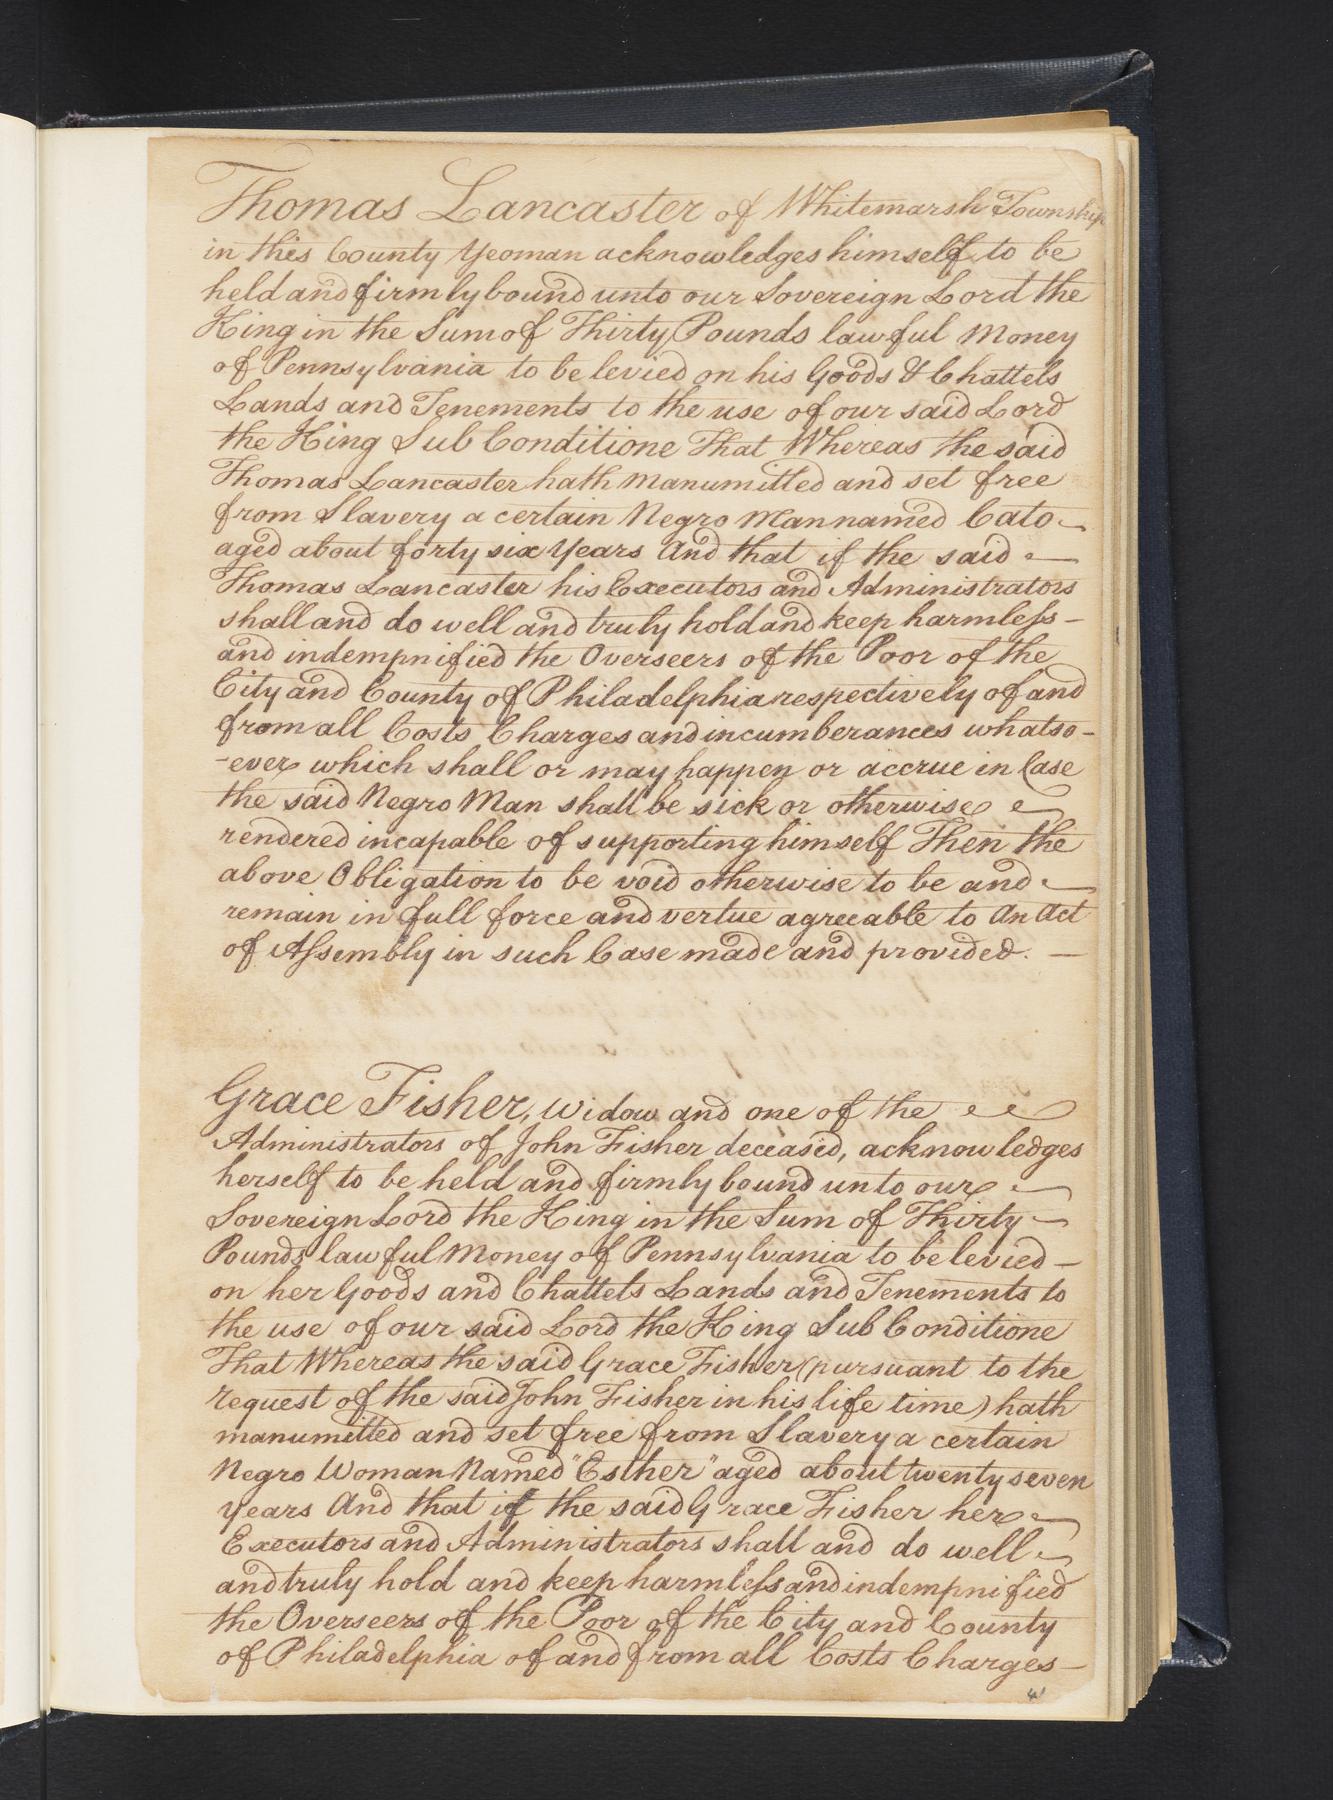 Thomas Lancaster of Whitemarsh Township
in this County Yeoman acknowledges himself to be
held and firmly bound unto our Sovereign Lord the
King in the Sum of Thirty Pounds lawful Money
of Pennsylvania to be levied on his Goods & Chattels
Lands and Tenements to the use of our said Lord
the King Sub Conditione That Whereas the said
Thomas Lancaster hath manumitted and set free
from Slavery a certain Negro Man named Cato
aged about forty six Years And that if the said
Thomas Lancaster his Executors and Administrators
shall and do well and truly hold and keep harmless -
and indempnified the Overseers of the Poor of the
City and County of Philadelphia respectively of and
from all Costs Charges and incumberances whatso-
-ever which shall or may happen or accrue in Case
the said Negro Man shall be sick or otherwise
rendered incapable of supporting himself Then the
above Obligation to be void otherwise to be and
remain in full force and vertue agreeable to An Act
of Assembly in such Case made and provided. —
Grace Fisher, Widow and one of the
Administrators of John Fisher deceased, acknowledges
herself to be held and firmly bound unto our
Sovereign Lord the King in the Sum of Thirty
Pounds lawful Money of Pennsylvania to be levied —
on her Goods and Chattels Lands and Tenements to
the use of our said Lord the King Sub Conditione
That Whereas the said Grace Fisher (pursuant to the
request of the said John Fisher in his life time) hath
manumitted and set free from Slavery a certain
Negro Woman Named "Esther" aged about twenty seven
years And that if the said Grace Fisher her
Executors and Administrators shall and do well
and truly hold and keep harmless and indempnified
the Overseers of the Poor of the City and County
of Philadelphia of and from all Costs Charges —